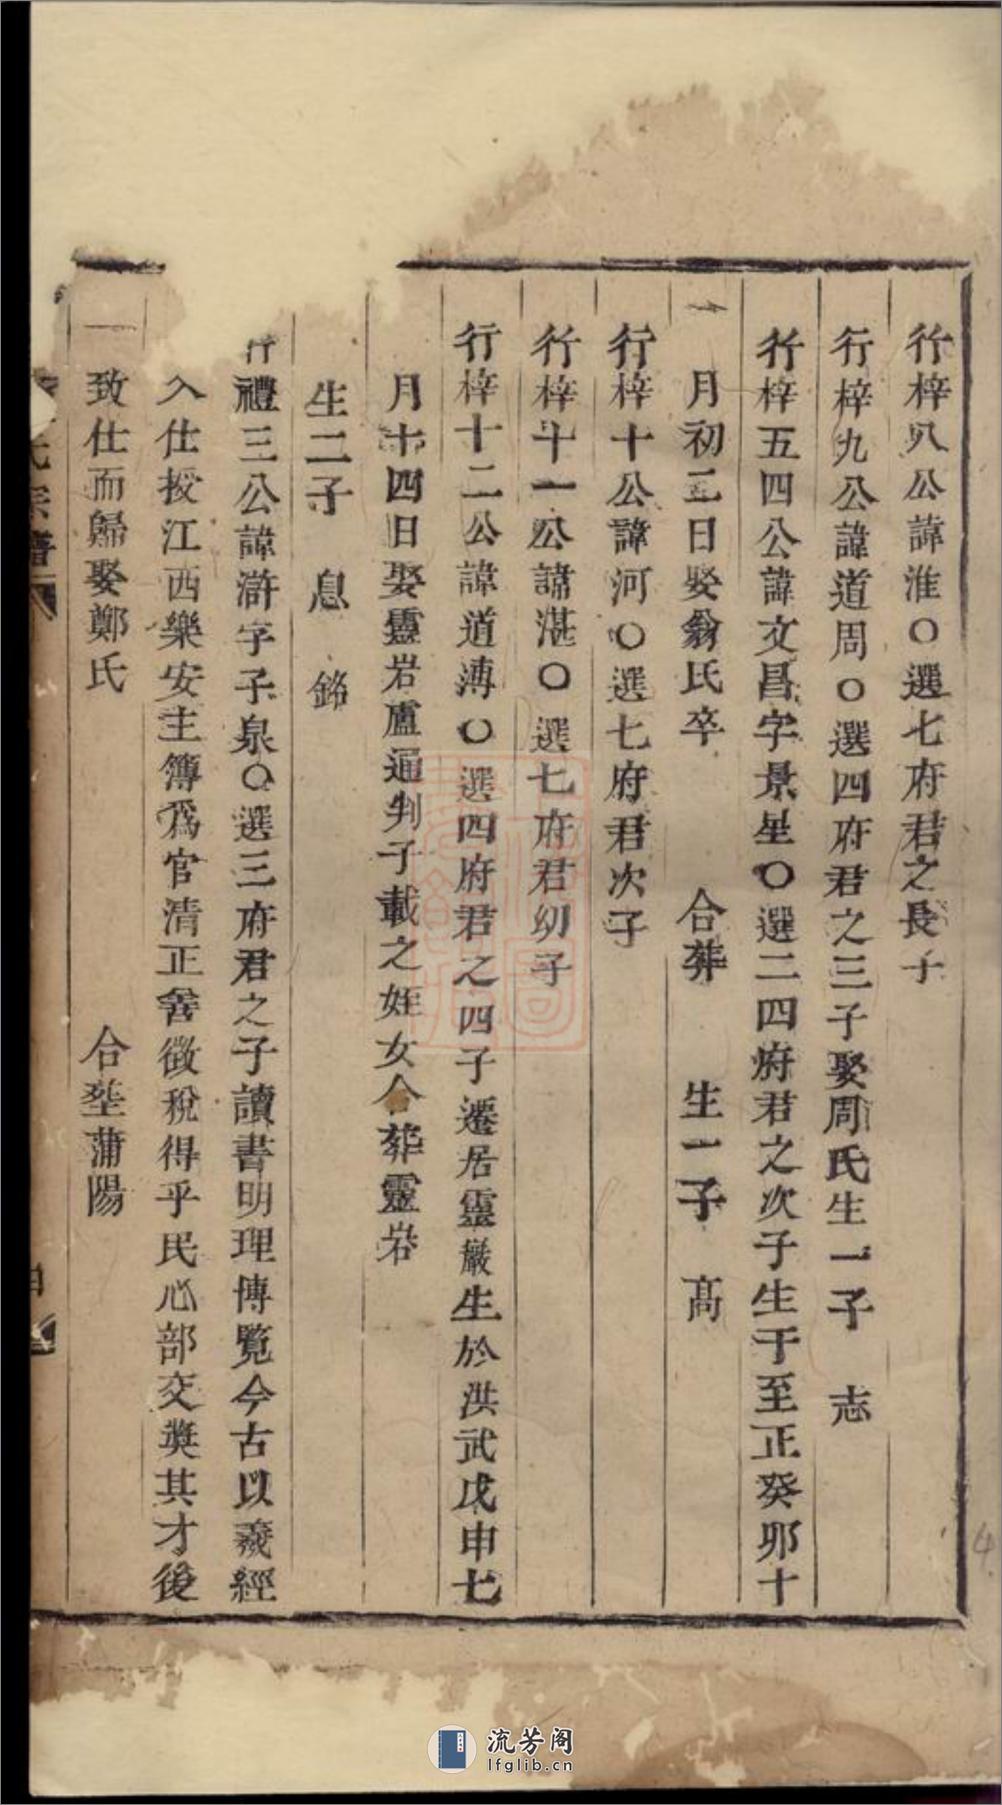 行梓八公諱淮〇選七府君之長子
行梓九公諱道周〇選四府君之三子娶周氏生一子 志
行梓五四公諱文昌字景星〇選二四府君之次子生于至正癸卯十
一月初二日娶翁氏卒 合葬 生一子 高
行梓十公諱河〇選七府君次子
行梓十一公諱湛〇選七府君幼子
行梓十二公諱道溥〇選四府君之四子遷居靈巖生於洪武戊申七
月十四日娶靈岩盧通判子載之姪女合葬靈岩
生二子 息 銘
行禮三公諱滸字子泉〇選三府君之子讀書明理博覽今古以羲經
入仕授江西樂安主簿爲官清正善徵稅得乎民心部交奬其才後
致仕而歸娶鄭氏 合塟蒲陽
氏宗譜
4
流芳阁
lfglib.cn